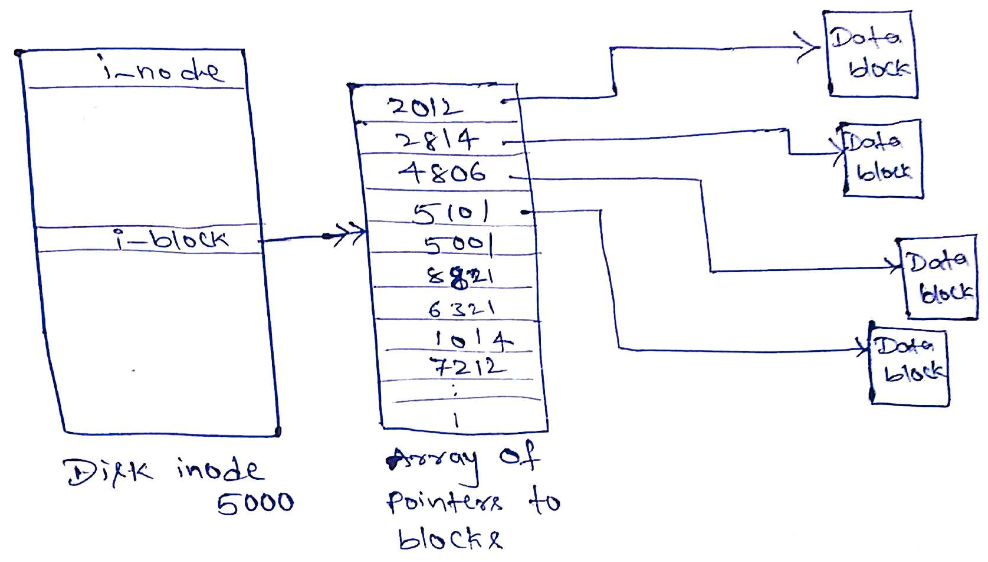 i-node
i-block
Disk inode
5000
2012
2814
4806
5101
5001
8821
6321
1014
7212
Array of
pointers to
blocks
Data
block
Data
block
Data
block
Data
block